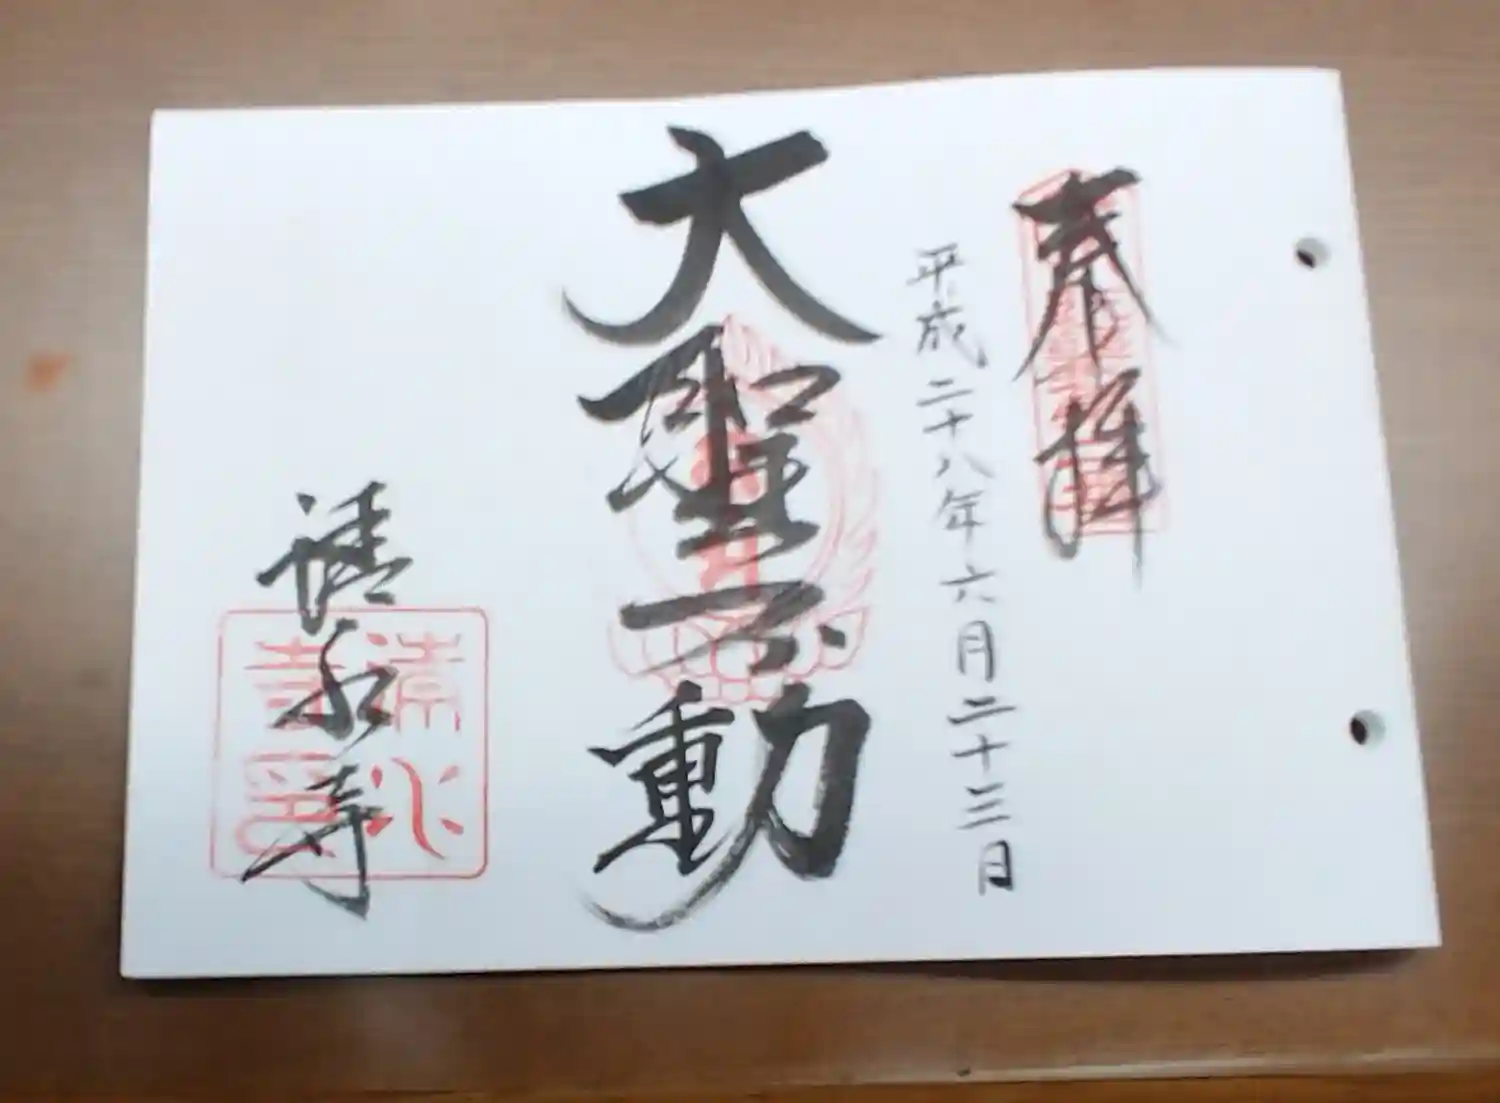 奉拝
平成二十八年六月二十三日
大聖不動
清水寺
清水
寺印